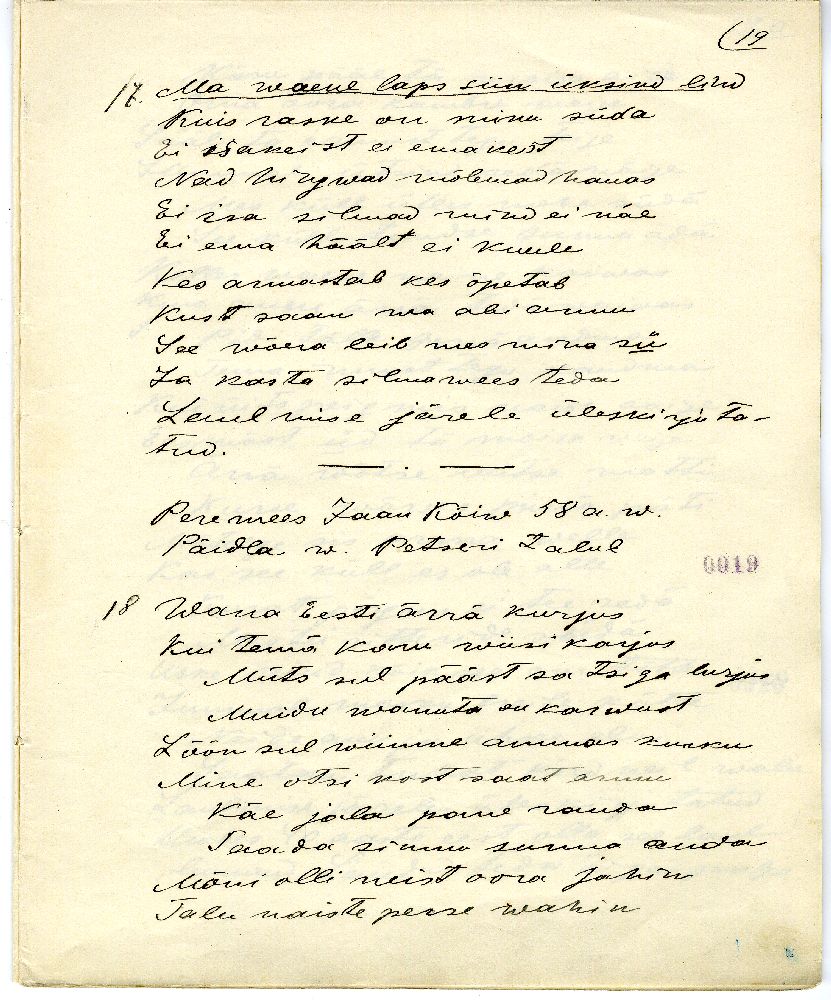 (19
17. Ma waene laps siin üksind lind
Kuis raske on minu süda
Ei isakeist ei emakest
Nad hingwad mõlemad hauas
Ei isa silmad mind ei näe
Ei ema häält ei kuule
Kes armastab kes õpetab
Kust saan ma abi armu
See wõera leib mes mina sü
Ja kasta silmawees teda
Laulmise järele üleskirjuta-
tud.
Peremees Jaan Kõiw 58 a. w.
Päidla w. Petseri talul
0019
18 Wana Eesti ärrä kurjus
Kui temä karu wiisi karjus
Müts sul pääst sa tsiga lurjus
Muidu wanuta on karwust
Löön sul wiimne ammas kurku
Mine otsi kost saat armu
Käe jala pane rauda
Saada sinnu surma anda
Mõni olli neist oora jahin
Talu naiste perse wahin